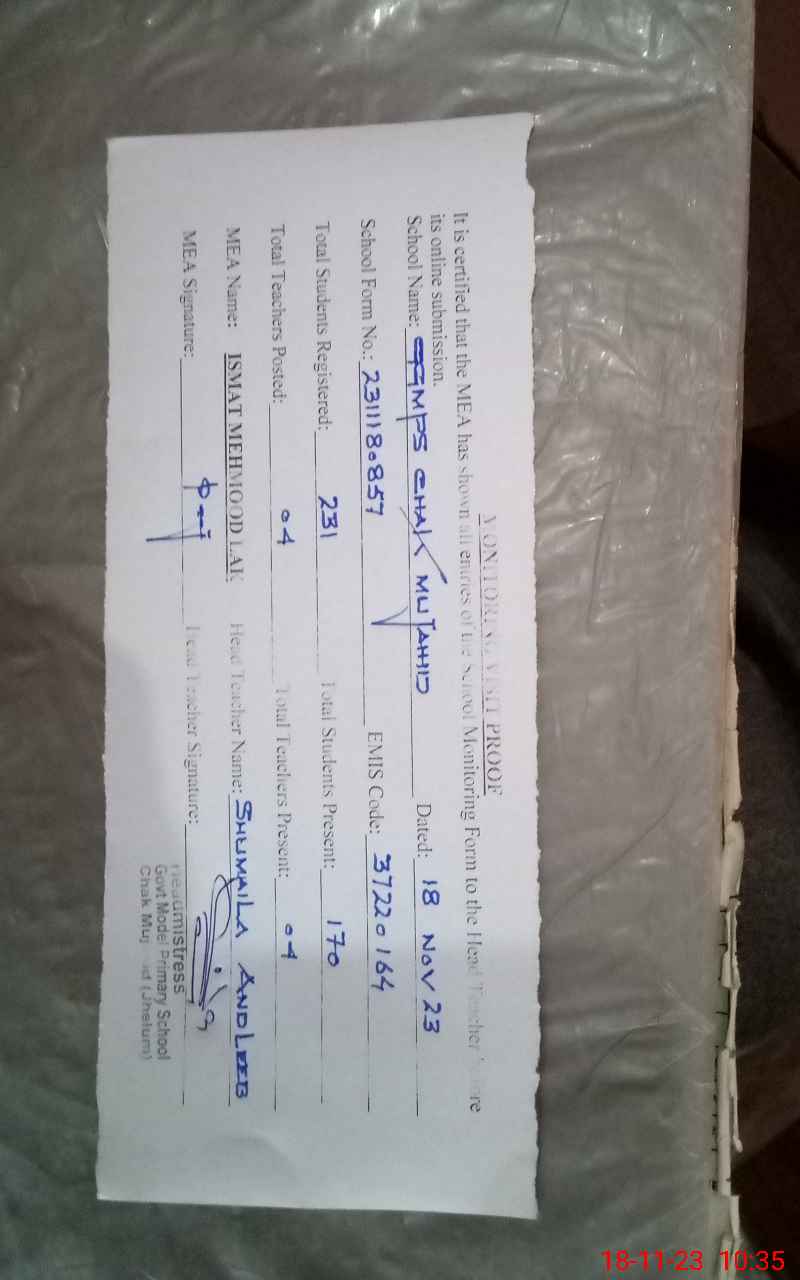 MONITORING VISIT PROOF
It is certified that the MEA has shown all entries of the School Monitoring Form to the Head Teacher before
its online submission.
School Name: GGMPS CHAK MUJAHID Dated: 18 NOV 23
School Form No.: 2311180857 EMIS Code: 37220164
Total Students Registered: 231 Total Students Present: 170
Total Teachers Posted: 04 Total Teachers Present: 04
MEA Name: ISMAT MEHMOOD LAK Head Teacher Name: SHUMAILA ANDLEEB
MEA Signature: Head Teacher Signature:
Headmistress
Govt Model Primary School
Chak (Jhelum)
18-11-23 10:35